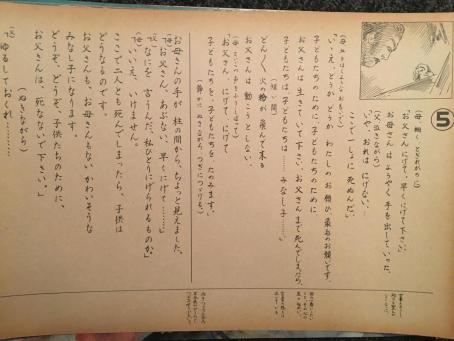 ⑤
(母 細く とぎれがちに)
「お父さん にげて、早くにげて下さい。
お母さんは ようやく 手を出していった。
(父 泣きながら)
「いや、おれは にげない。
ここで一しょに 死ぬんだ。」
「いゝえ、どうか どうか わたしの お願ひ、最后のお願いです。
子どもたちのために、子どもたちのために
お父さんは 生きていて下さい、お父さんまで死んでしまったら、
子どもたちは、子どもたちは…… みなし子……」
(短い間)
どん〱 火の粉が 飛んで来る
お父さんは 動こうとしない。
「お父さん にげて にげて
子どもたちを、子どもたちを、たのみます。
お母さんの手が 柱の間から、ちょっと見えました。
「お父さん、あぶない、早くにげて……」
「なにを 言うんだ、私ひとりにげられるものか。」
「いいえ、いけません。
ここで二人とも死んでしまったら、子供は
どうなるのです。
お父さんも、お母さんもない かわいそうな
みなし子になります。
どうぞ、どうぞ、子供たちのために、
お父さんは、死なないで下さい。」
(泣きながら)
「ゆるしておくれ………